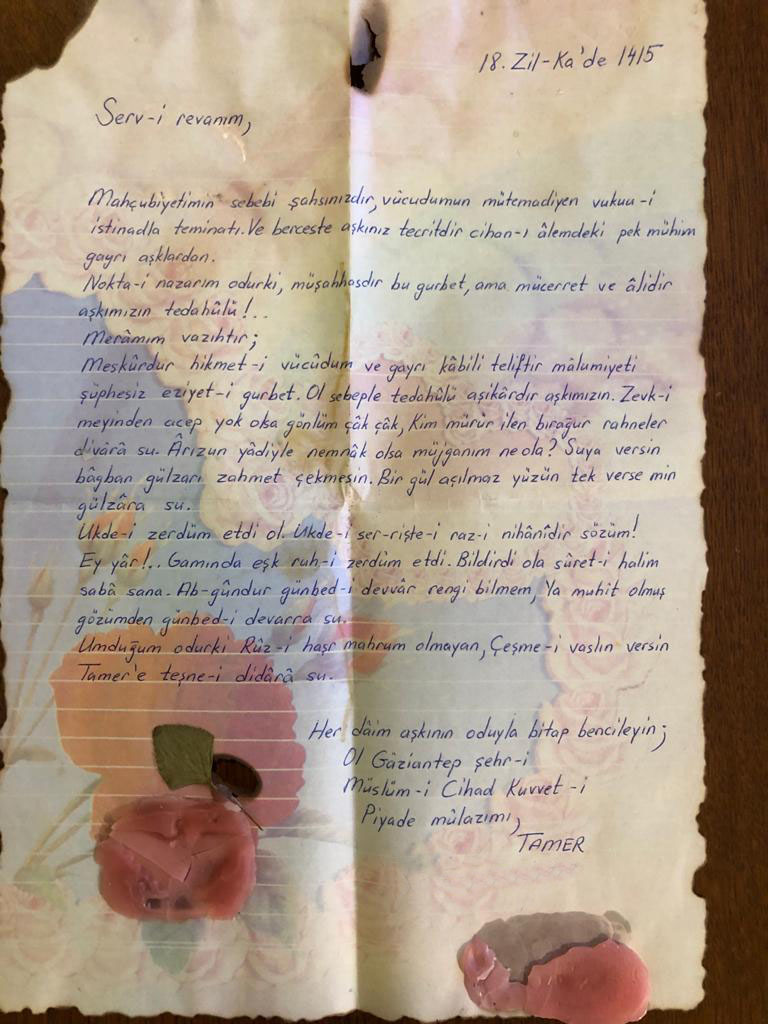 18. Zil-Ka'de 1415
Serv-i revanım,
Mahçubiyetimin sebebi şahsınızdır, vücudumun mütemadiyen vukuu-i
istinadla teminatı. Ve berceste aşkınız tecritdir cihan-ı âlemdeki pek mühim
gayrı aşklardan.
Nokta-i nazarım odurki, müşahhasdır bu gurbet, ama mücerret ve âlidir
aşkımızın tedahûlü!..
Merâmım vazıhtır;
Meskûrdur hikmet-i vücûdum ve gayrı kâbili teliftir mâlumiyeti
şüphesiz eziyet-i gurbet. Ol sebeple tedahûlü aşikârdır aşkımızın. Zevk-i
meyinden acep yok olsa gönlüm çâk çâk, Kim mürûr ilen bırağur rahneler
dîvârâ su. Ârızun yâdiyle nemnâk olsa müjganım ne ola? Suya versin
bâgban gülzarı zahmet çekmesin. Bir gül açılmaz yüzün tek verse min
gülzâra su.
Ukde-i zerdüm etdi ol. Ukde-i ser-rişte-i raz-i nihânîdir sözüm!
Ey yâr!.. Gamında eşk ruh-i zerdüm etdi. Bildirdi ola sûret-i halim
sabâ sana. Ab-gûndur günbed-i devvâr rengi bilmem, Ya muhit olmuş
gözümden günbed-i devarra su.
Umduğum odurki Rûz-i haşr mahrum olmayan, Çeşme-i vaslın versin
Tamer'e teşne-i didârâ su.
Her dâim aşkının oduyla bitap bencileyin;
Ol Gâziantep şehr-i
Müslüm-i Cihad Kuvvet-i
Piyade mûlazımı,
TAMER